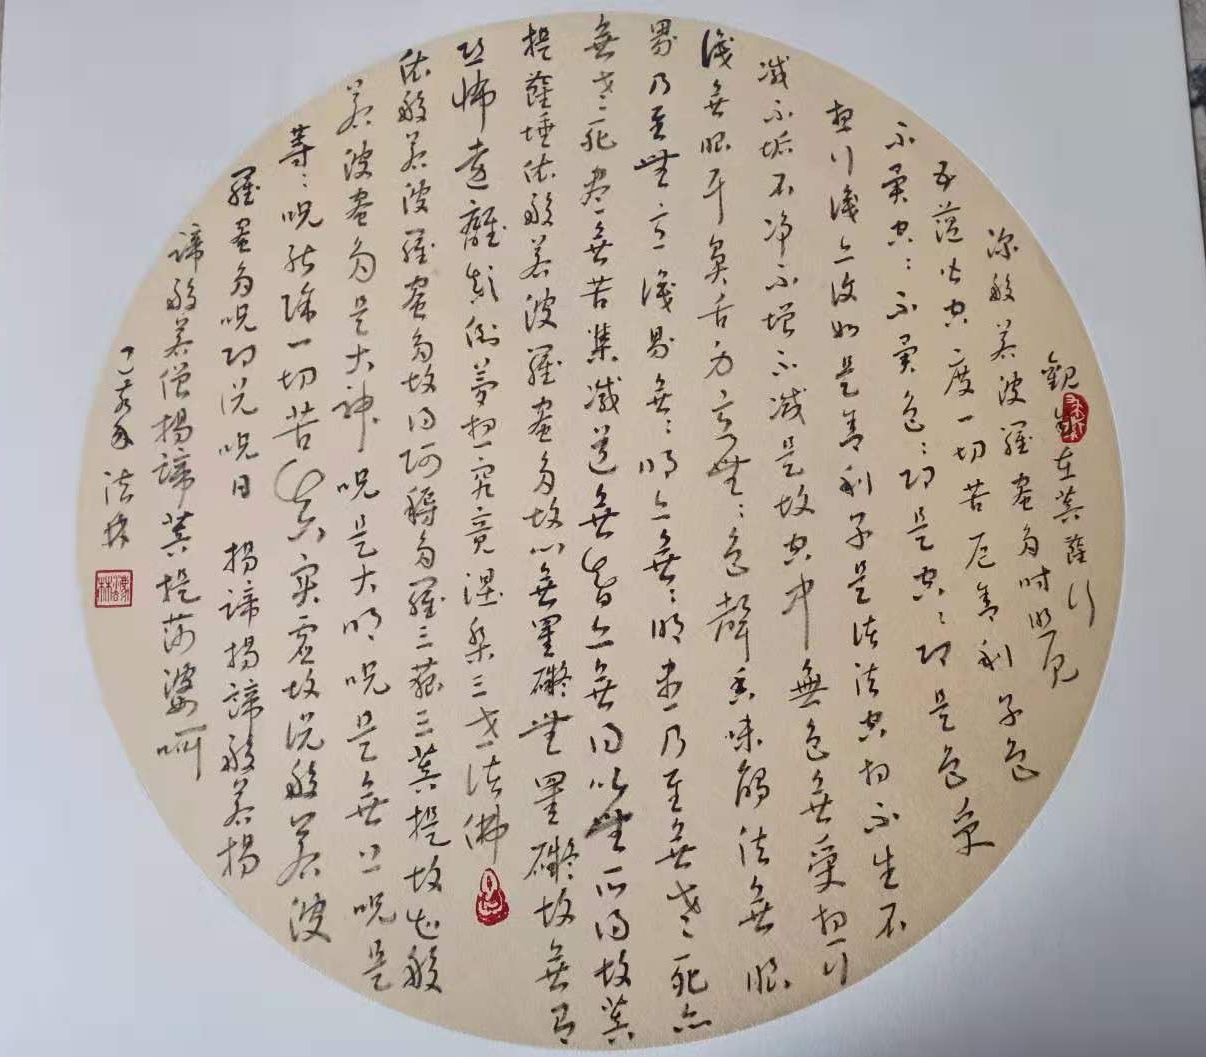 觀自在菩薩行
深般若波羅蜜多時照見
五蘊皆空度一切苦厄舍利子色
不異空々不異色々即是空々即是色受
想行識亦復如是舍利子是諸法空相不生不
滅不垢不净不增不減是故空中無色無受想行
識無眼耳鼻舌身意無々色聲香味觸法無眼
界乃至無意識界無々明亦無々明盡乃至無老死亦
無老死盡無苦集滅道無智亦無得以無所得故菩
提薩埵依般若波羅蜜多故心無罣礙無罣礙故無有
恐怖遠離顛倒夢想究竟涅槃三世諸佛
依般若波羅蜜多故得阿耨多羅三藐三菩提故知般
若波羅蜜多是大神呪是大明呪是無上呪是
等々呪能除一切苦真實虛故說般若波
羅蜜多呪即說呪曰 揭諦揭諦般若揭
諦般若僧揭諦菩提莎婆呵
己亥年 法林